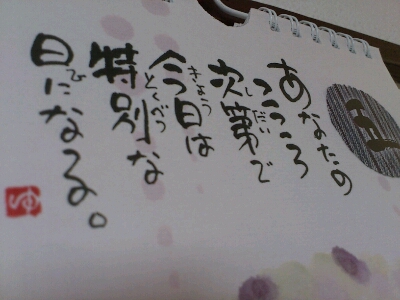 あなたの
こころ
次第で
しだい
今日は
きょう
特別な
とくべつ
日になる。
ひ